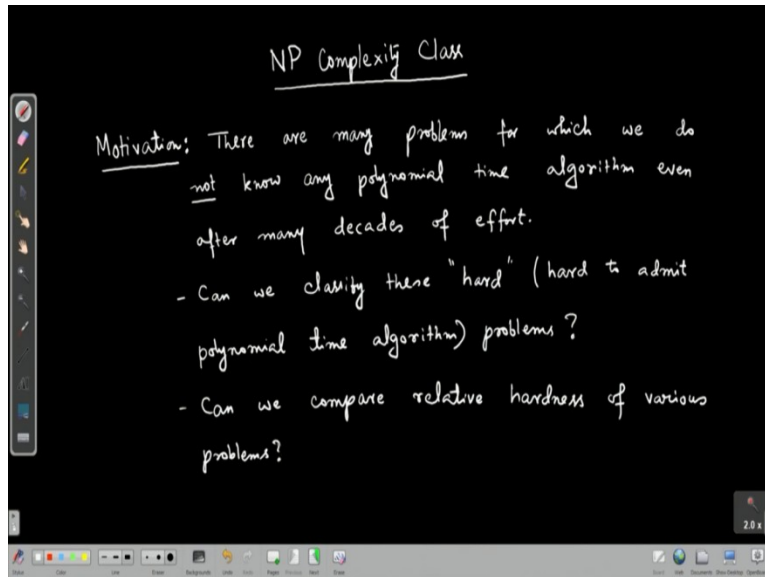 NP Complexity Class
Motivation: There are many problems for which we do
not know any polynomial time algorithm even
after many decades of effort.
- Can we classify these "hard" (hard to admit
polynomial time algorithm) problems?
- Can we compare relative hardness of various
problems?
2.0 x